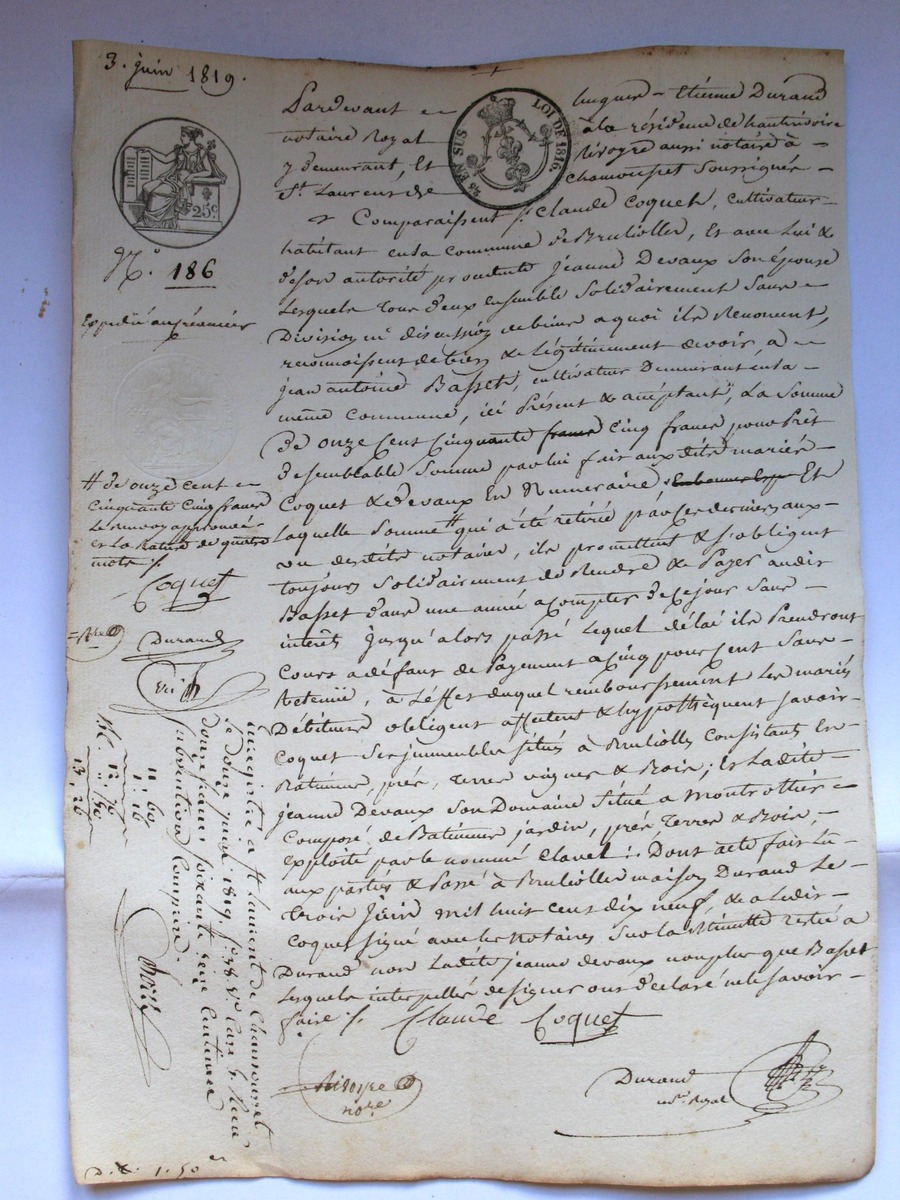 3. juin 1819.
Pardevant Etienne Durand
notaire Royal à la résidence de hauterivoire
y demeurant, Et Rivoyre aussi notaire à
St. Laurent de chamousset Soussignés
25 EN SUS
LOI DE 1816.
25c
N.o 186
Expédié au créancier
Comparaissent Sr. Claude Coquet, cultivateur
habitant en la Commune de Brulliolles, Et avec Lui &
de son autorité procédante Jeanne Devaux Son épouse
Lesquels Tous deux ensemble Solidairement Sans
Division ni discussion de biens a quoi ils Renoncent,
reconnoissent de bien & légitimement devoir, à
jean antoine Basset, cultivateur Demeurant en la
même Commune, ici Présent & acceptant, La Somme
de onze Cent Cinquante francs Cinq francs pour Prêt
de semblable Somme par lui fait aux dits mariés
Coquet & devaux En Numeraire Et
Laquelle Somme # qui a été retiré par ces derniers aux
vu desdits notaires, ils promettent & s'obligent
toujours Solidairement de Rendre & Payer audit
Basset dans une année a compter de ce jour Sans
intérêts jusqu'alors passé Lequel délai ils Prendront
Cours a défaut de Payement a Cinq pour Cent Sans
Retenue, à L'effet duquel remboursement Les mariés
Débiteurs obligent affectent & hypothèquent Savoir
Coquet Ses immeubles Situés à Brulliolles Consistants En
Batiments, prés, Terres vignes & Bois; Et Ladite
jeanne Devaux Son Domaine Situé a Montrottier
Composé de Batiments jardin, prés Terres & Bois,
Exploité par le nommé Clavel. Dont acte fait Lu
aux parties & Passé à Brulliolles maison Durand Le
trois juin mil huit Cent dix neuf, & a Ledit
Coquet Signé avec les Notaires Sur la Minutte restée a
Durand non Ladite jeanne devaux non plus que Basset
Lesquels interpellés de Signer ont déclaré ne le Savoir
faire
# de onze cent
Cinquante Cinq francs
Le renvoy approuvé
Et La Rature de quatre
mots
Coquet
Durand
Enregistré a St. Laurent de Chamousset
Le douze juin 1819
douze francs Soixante Seize Centimes
Subvention Comprise
11 60
1. 16
12. 76
50
13. 26
Claude Coquet
Rivoyre
nore
Durand
nre. Royal
1. 50